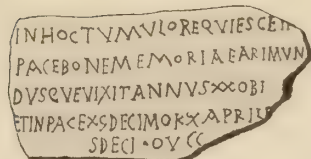 INHOCTVMVLOREQVIESCETIN
PACEBONEMEMORIAEARIMVN
DVSQVEVIXITANNVSXXOBI
ETINPACEXSDECIMOKXAPRILE
SDECI•OVCC